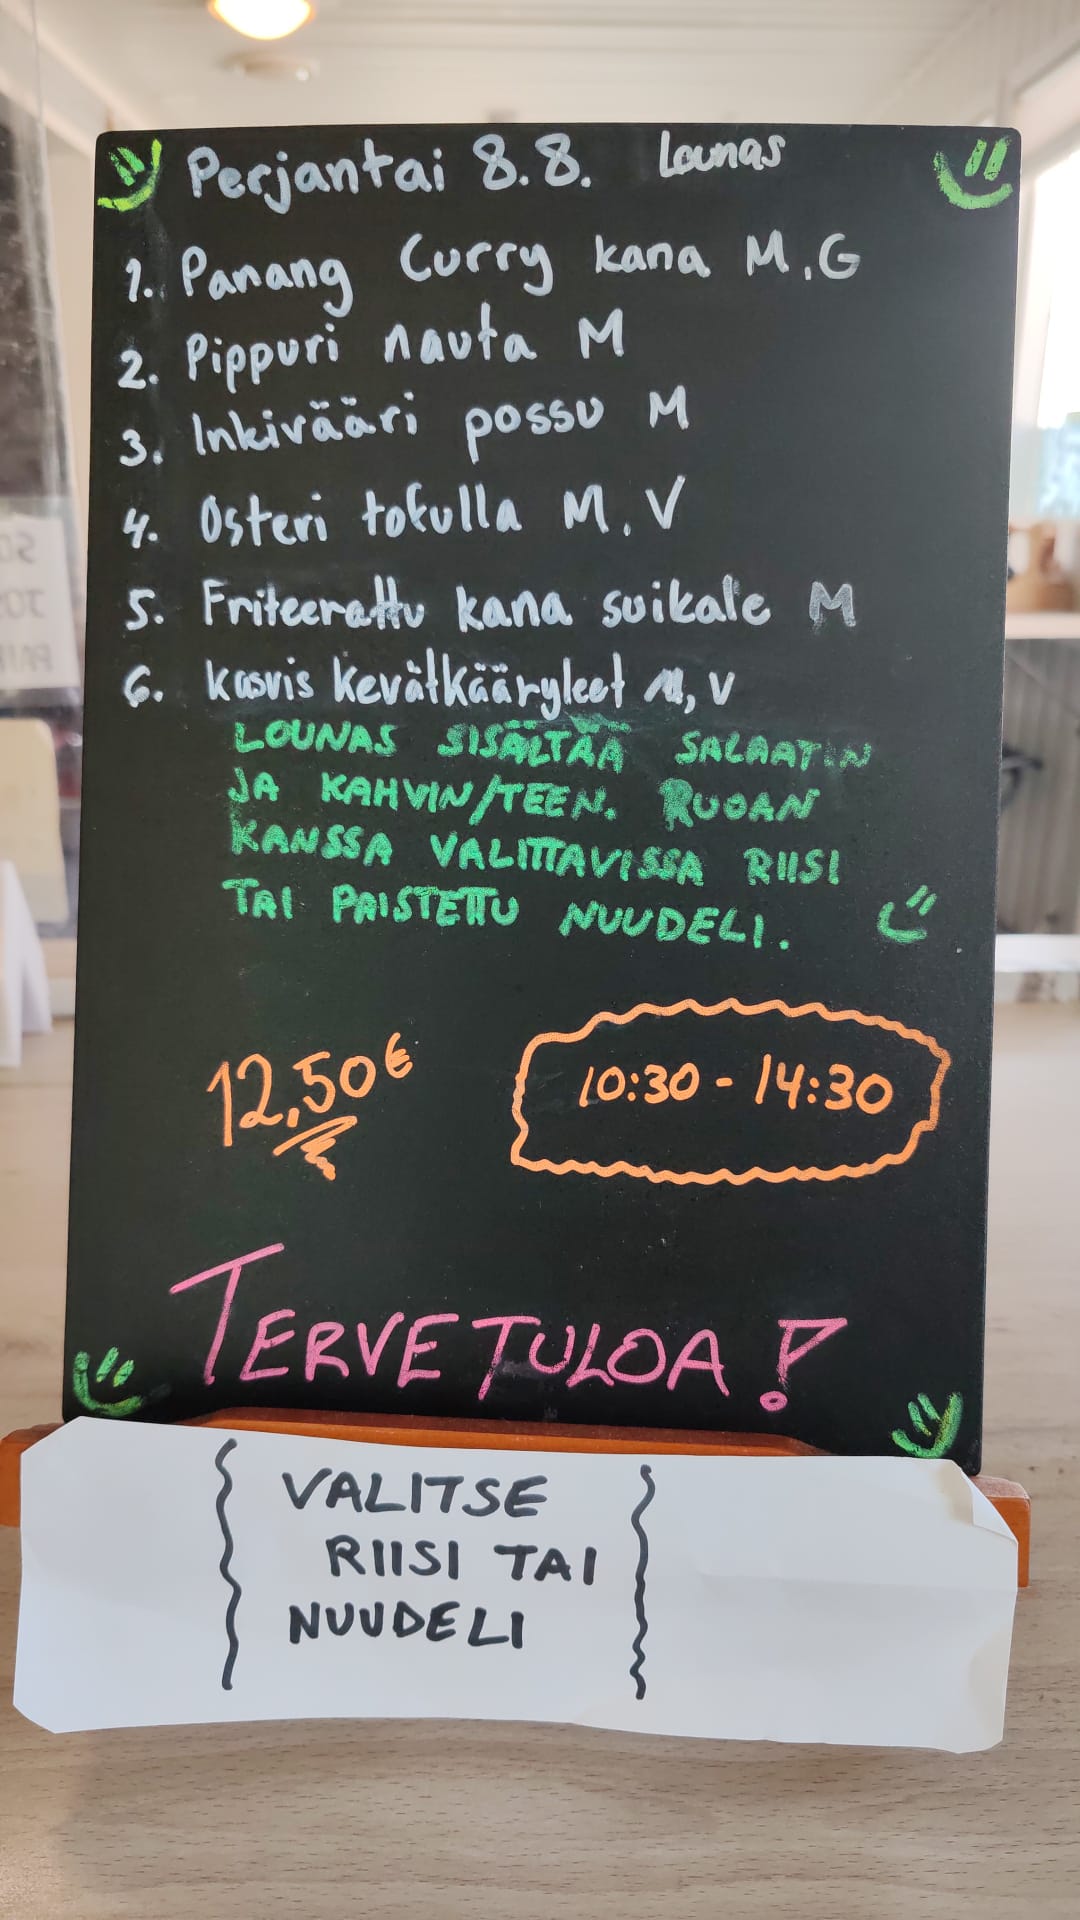 Perjantai 8.8. Lounas
1. Panang Curry kana M,G
2. Pippuri nauta M
3. Inkivääri possu M
4. Osteri tofulla M, V
5. Friteerattu kana suikale M
6. Kasvis kevätkääryleet M, V
LOUNAS SISÄLTÄÄ SALAATIN
JA KAHVIN/TEEN. RUOAN
KANSSA VALITTAVISSA RIISI
TAI PAISTETTU NUUDELI.
12,50€
10:30 - 14:30
TERVETULOA!
VALITSE
RIISI TAI
NUUDELI